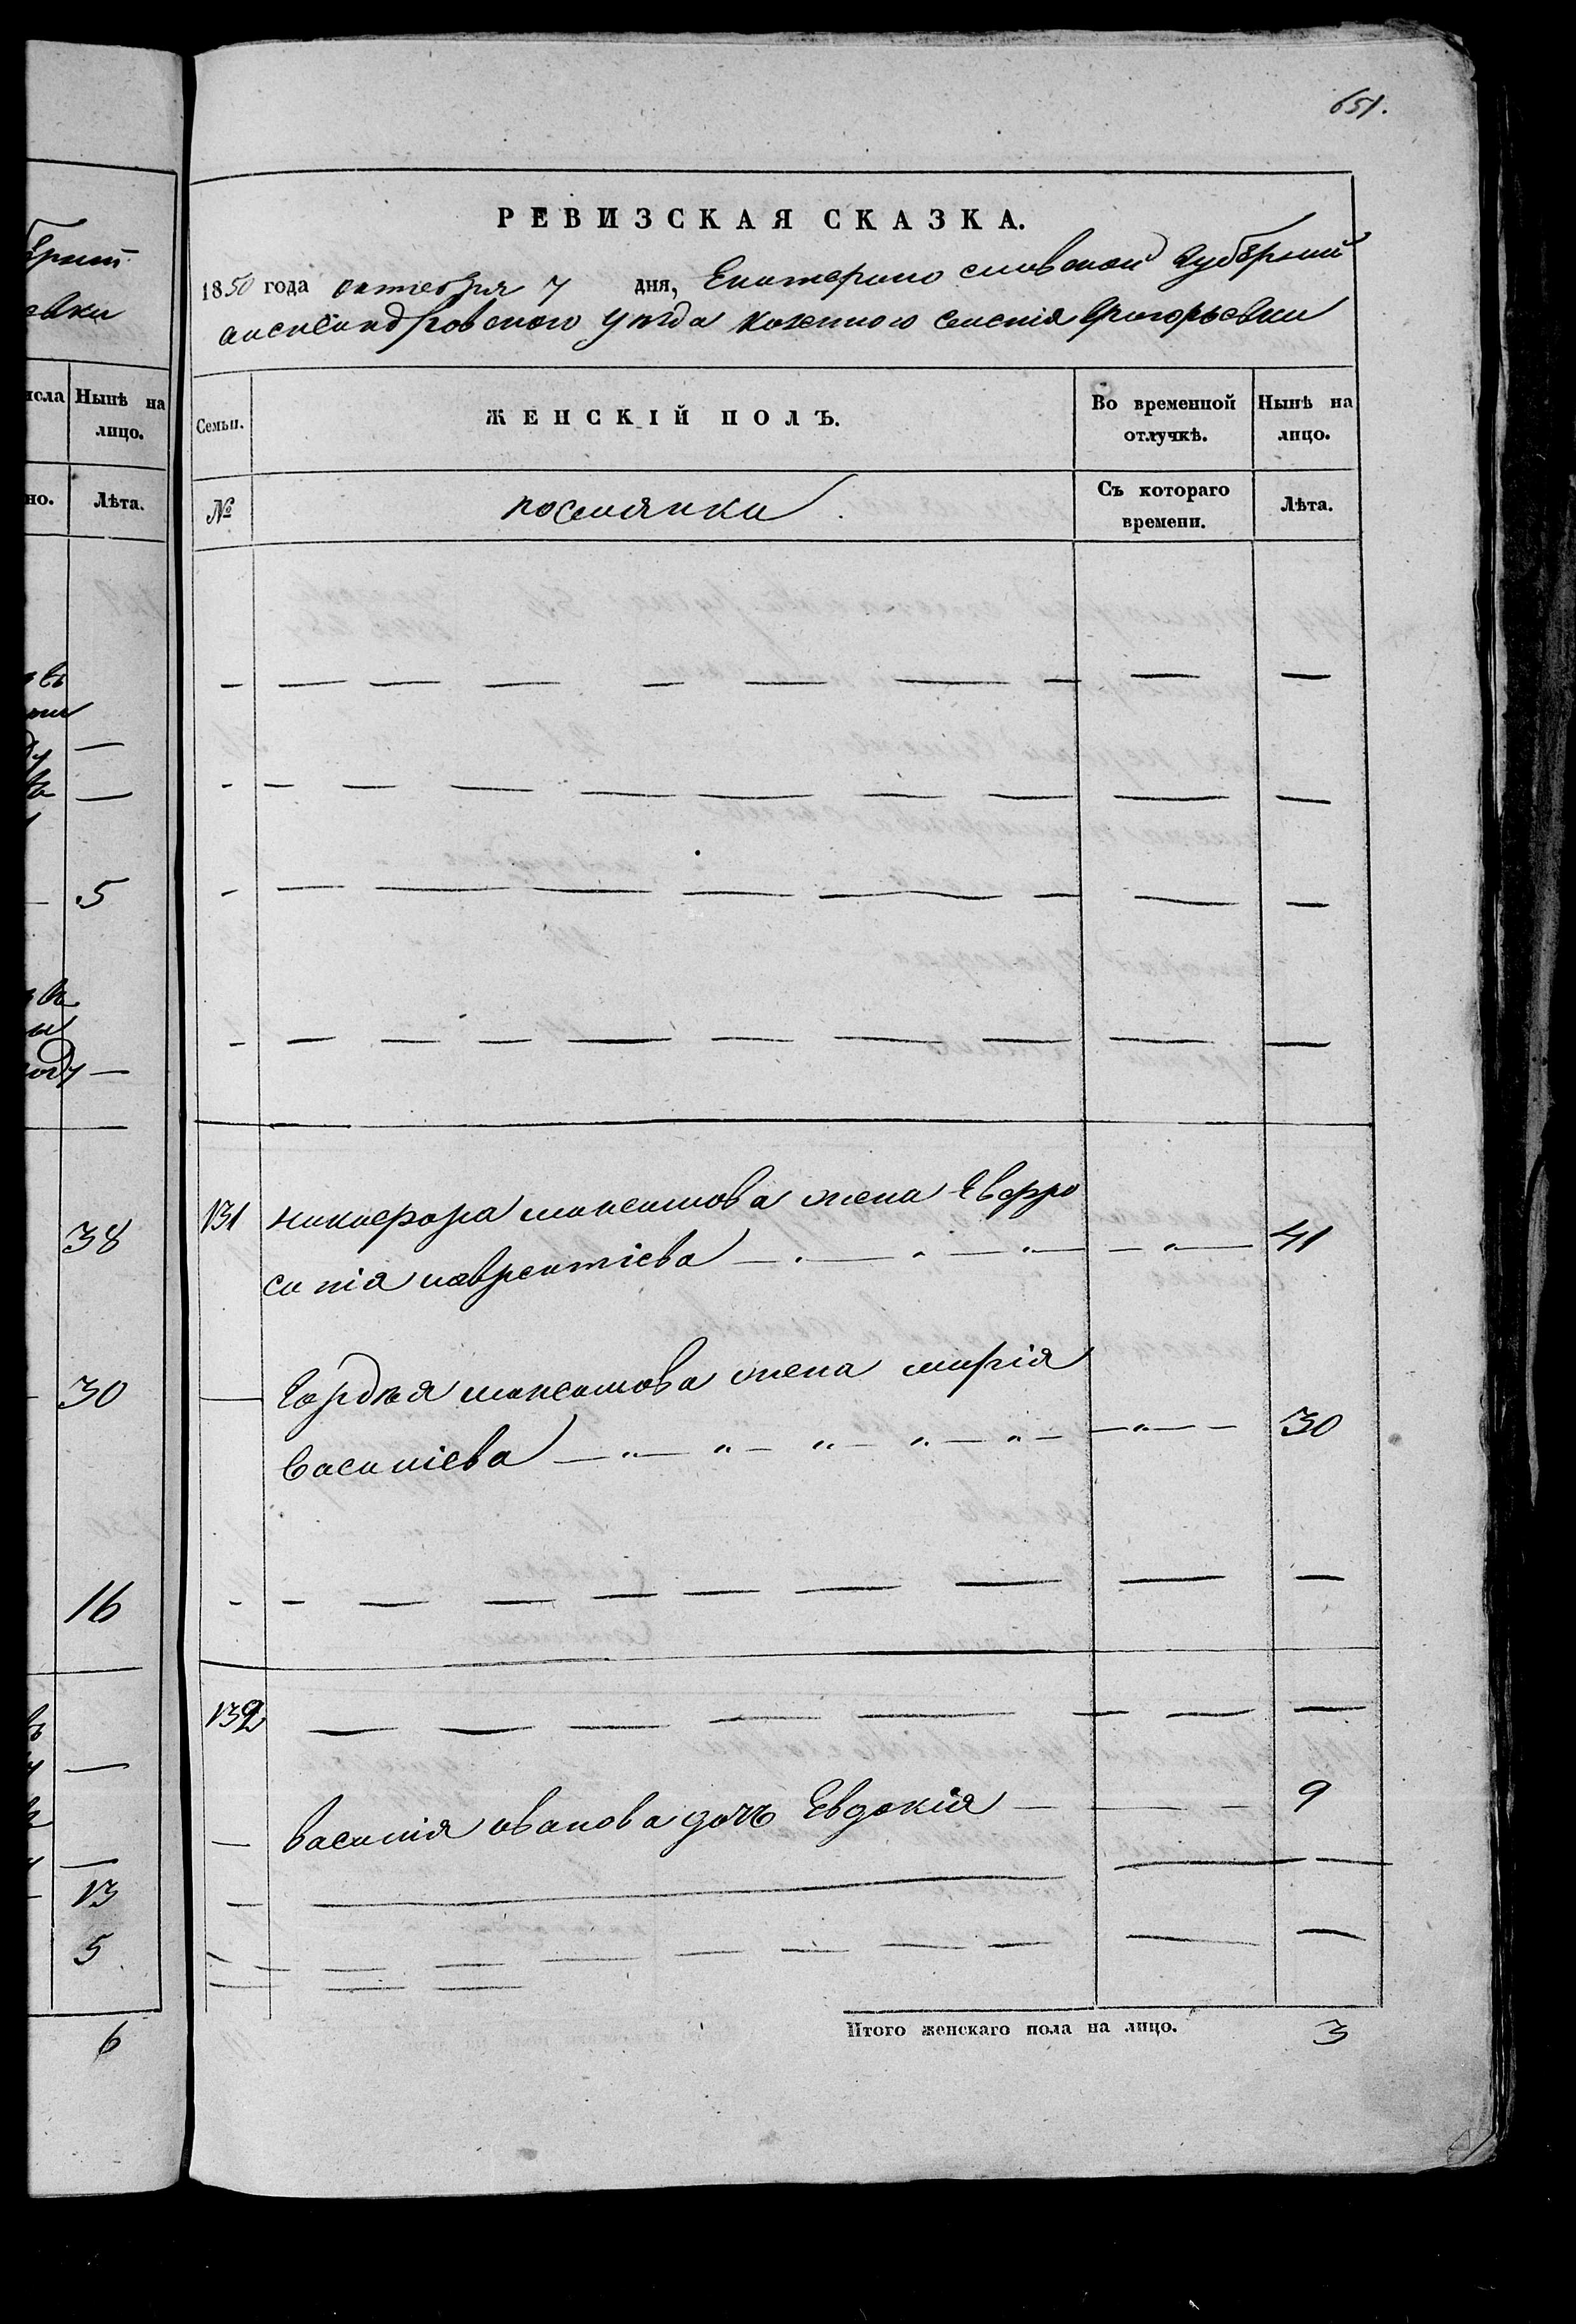 651.
РЕВИЗСКАЯ СКАЗКА.
1850 года октебря 7 дня, Екатерино славской Губернии
александровского уезда казенного селения Григорьевки
Семьи.
ЖЕНСКІЙ ПОЛЪ.
Во временной отлучкѣ.
Нынѣ на лицо.
№
поселянки
Съ котораго времени.
Лѣта.
131 никифора максимова жена Евфро
синія лаврентіева — 41
— Гордѣя максимова жена марія
Василіева — 30
132
— василія иванова дочь Евдокія — 9
Итого женскаго пола на лицо. 3
Нынѣ на
лицо.
Лѣта.
5
38
30
16
13
5
6